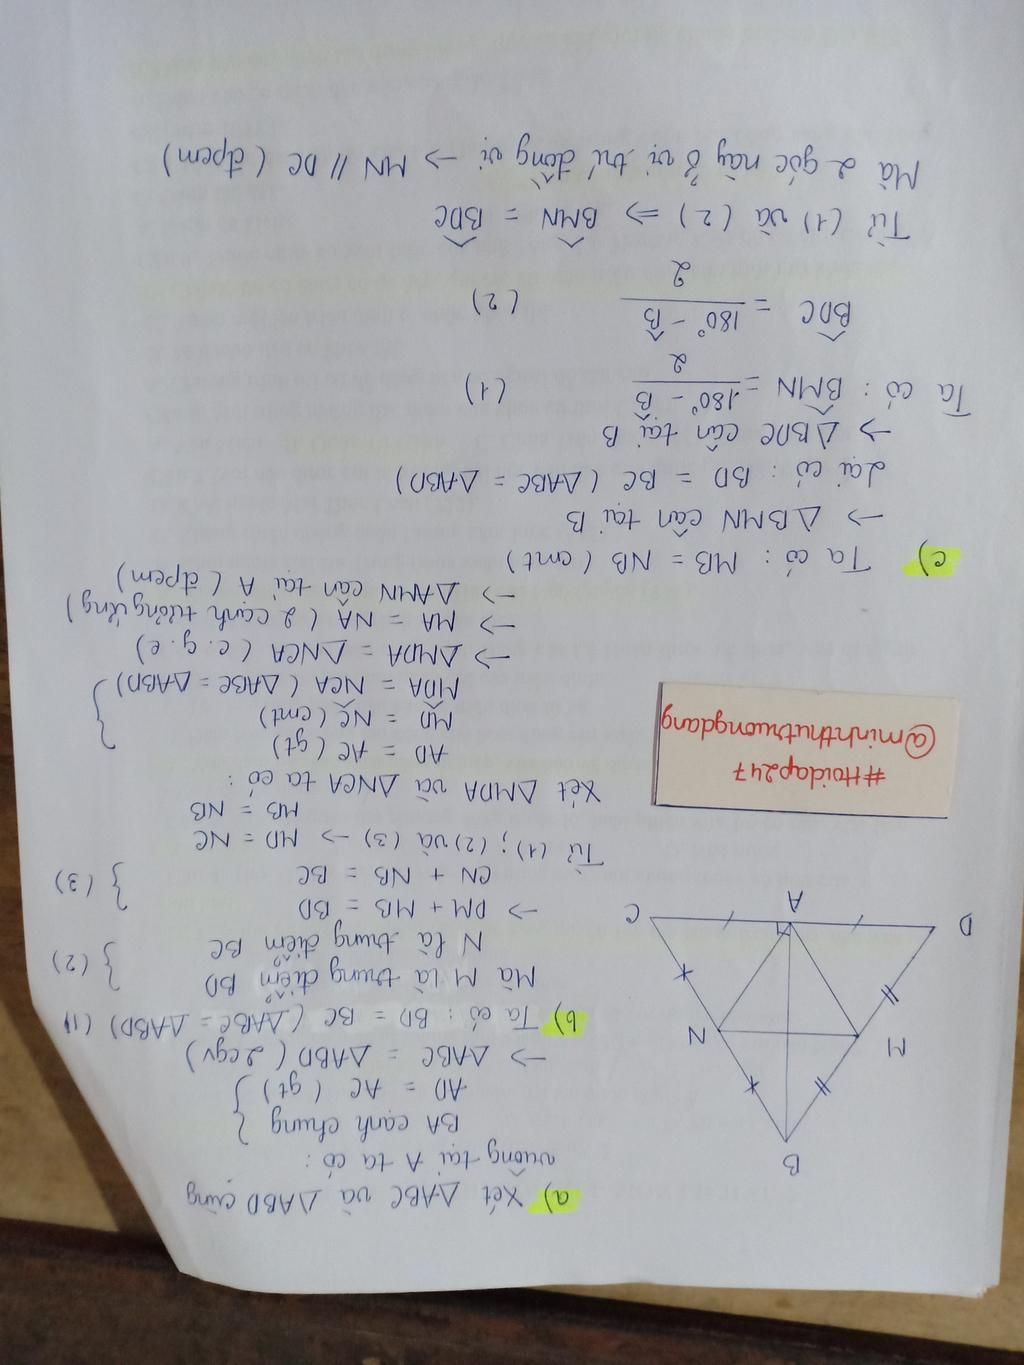 a) Xét ΔABC và ΔABD cùng
vuông tại A ta có:
BA cạnh chung
AD = AC (gt) }
→ ΔABC = ΔABD (2cgv)
b) Ta có: BD = BC (ΔABC = ΔABD) (1)
Mà M là trung điểm BD
N là trung điểm BC } (2)
→ DM + MB = BD
CN + NB = BC } (3)
Từ (1); (2) và (3) → MD = NC
MB = NB
Xét ΔMDA và ΔNCA ta có:
AD = AC (gt)
MD = NC (cmt)
M̂DA = N̂CA (ΔABC = ΔABD) }
→ ΔMDA = ΔNCA (c.g.c)
→ MA = NA (2 cạnh tương ứng)
→ ΔAMN cân tại A (đpcm)
c) Ta có: MB = NB (cmt)
→ ΔBMN cân tại B
Lại có: BD = BC (ΔABC = ΔABD)
→ ΔBDC cân tại B
Ta có: B̂MN = (180° - B̂)/2 (1)
B̂DC = (180° - B̂)/2 (2)
Từ (1) và (2) ⇒ B̂MN = B̂DC
Mà 2 góc này ở vị trí đồng vị → MN // DC (đpcm)
B
M
N
D
A
C
#Hoidap247
@minhthutruongdang